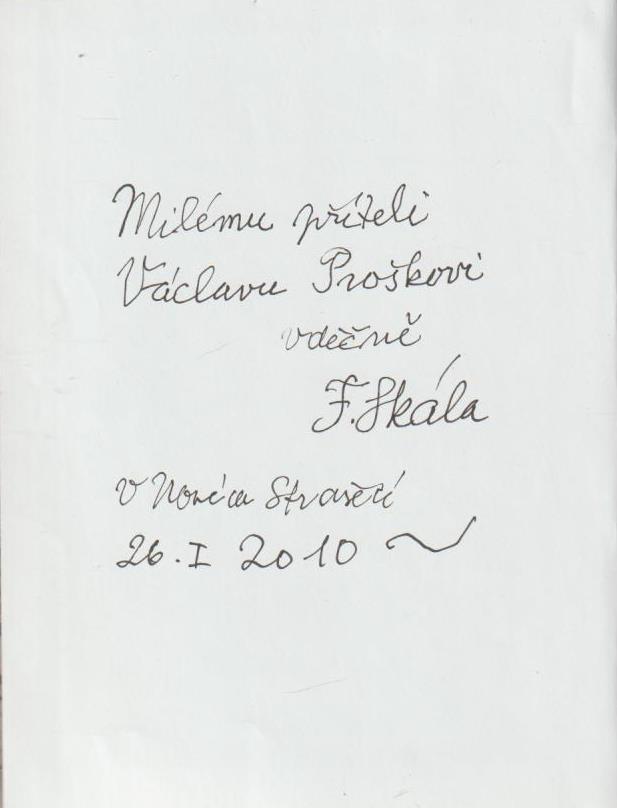 Milému příteli
Václavu Proškovi
vděčně
F. Skála
V Novém Strašecí
26. I 2010